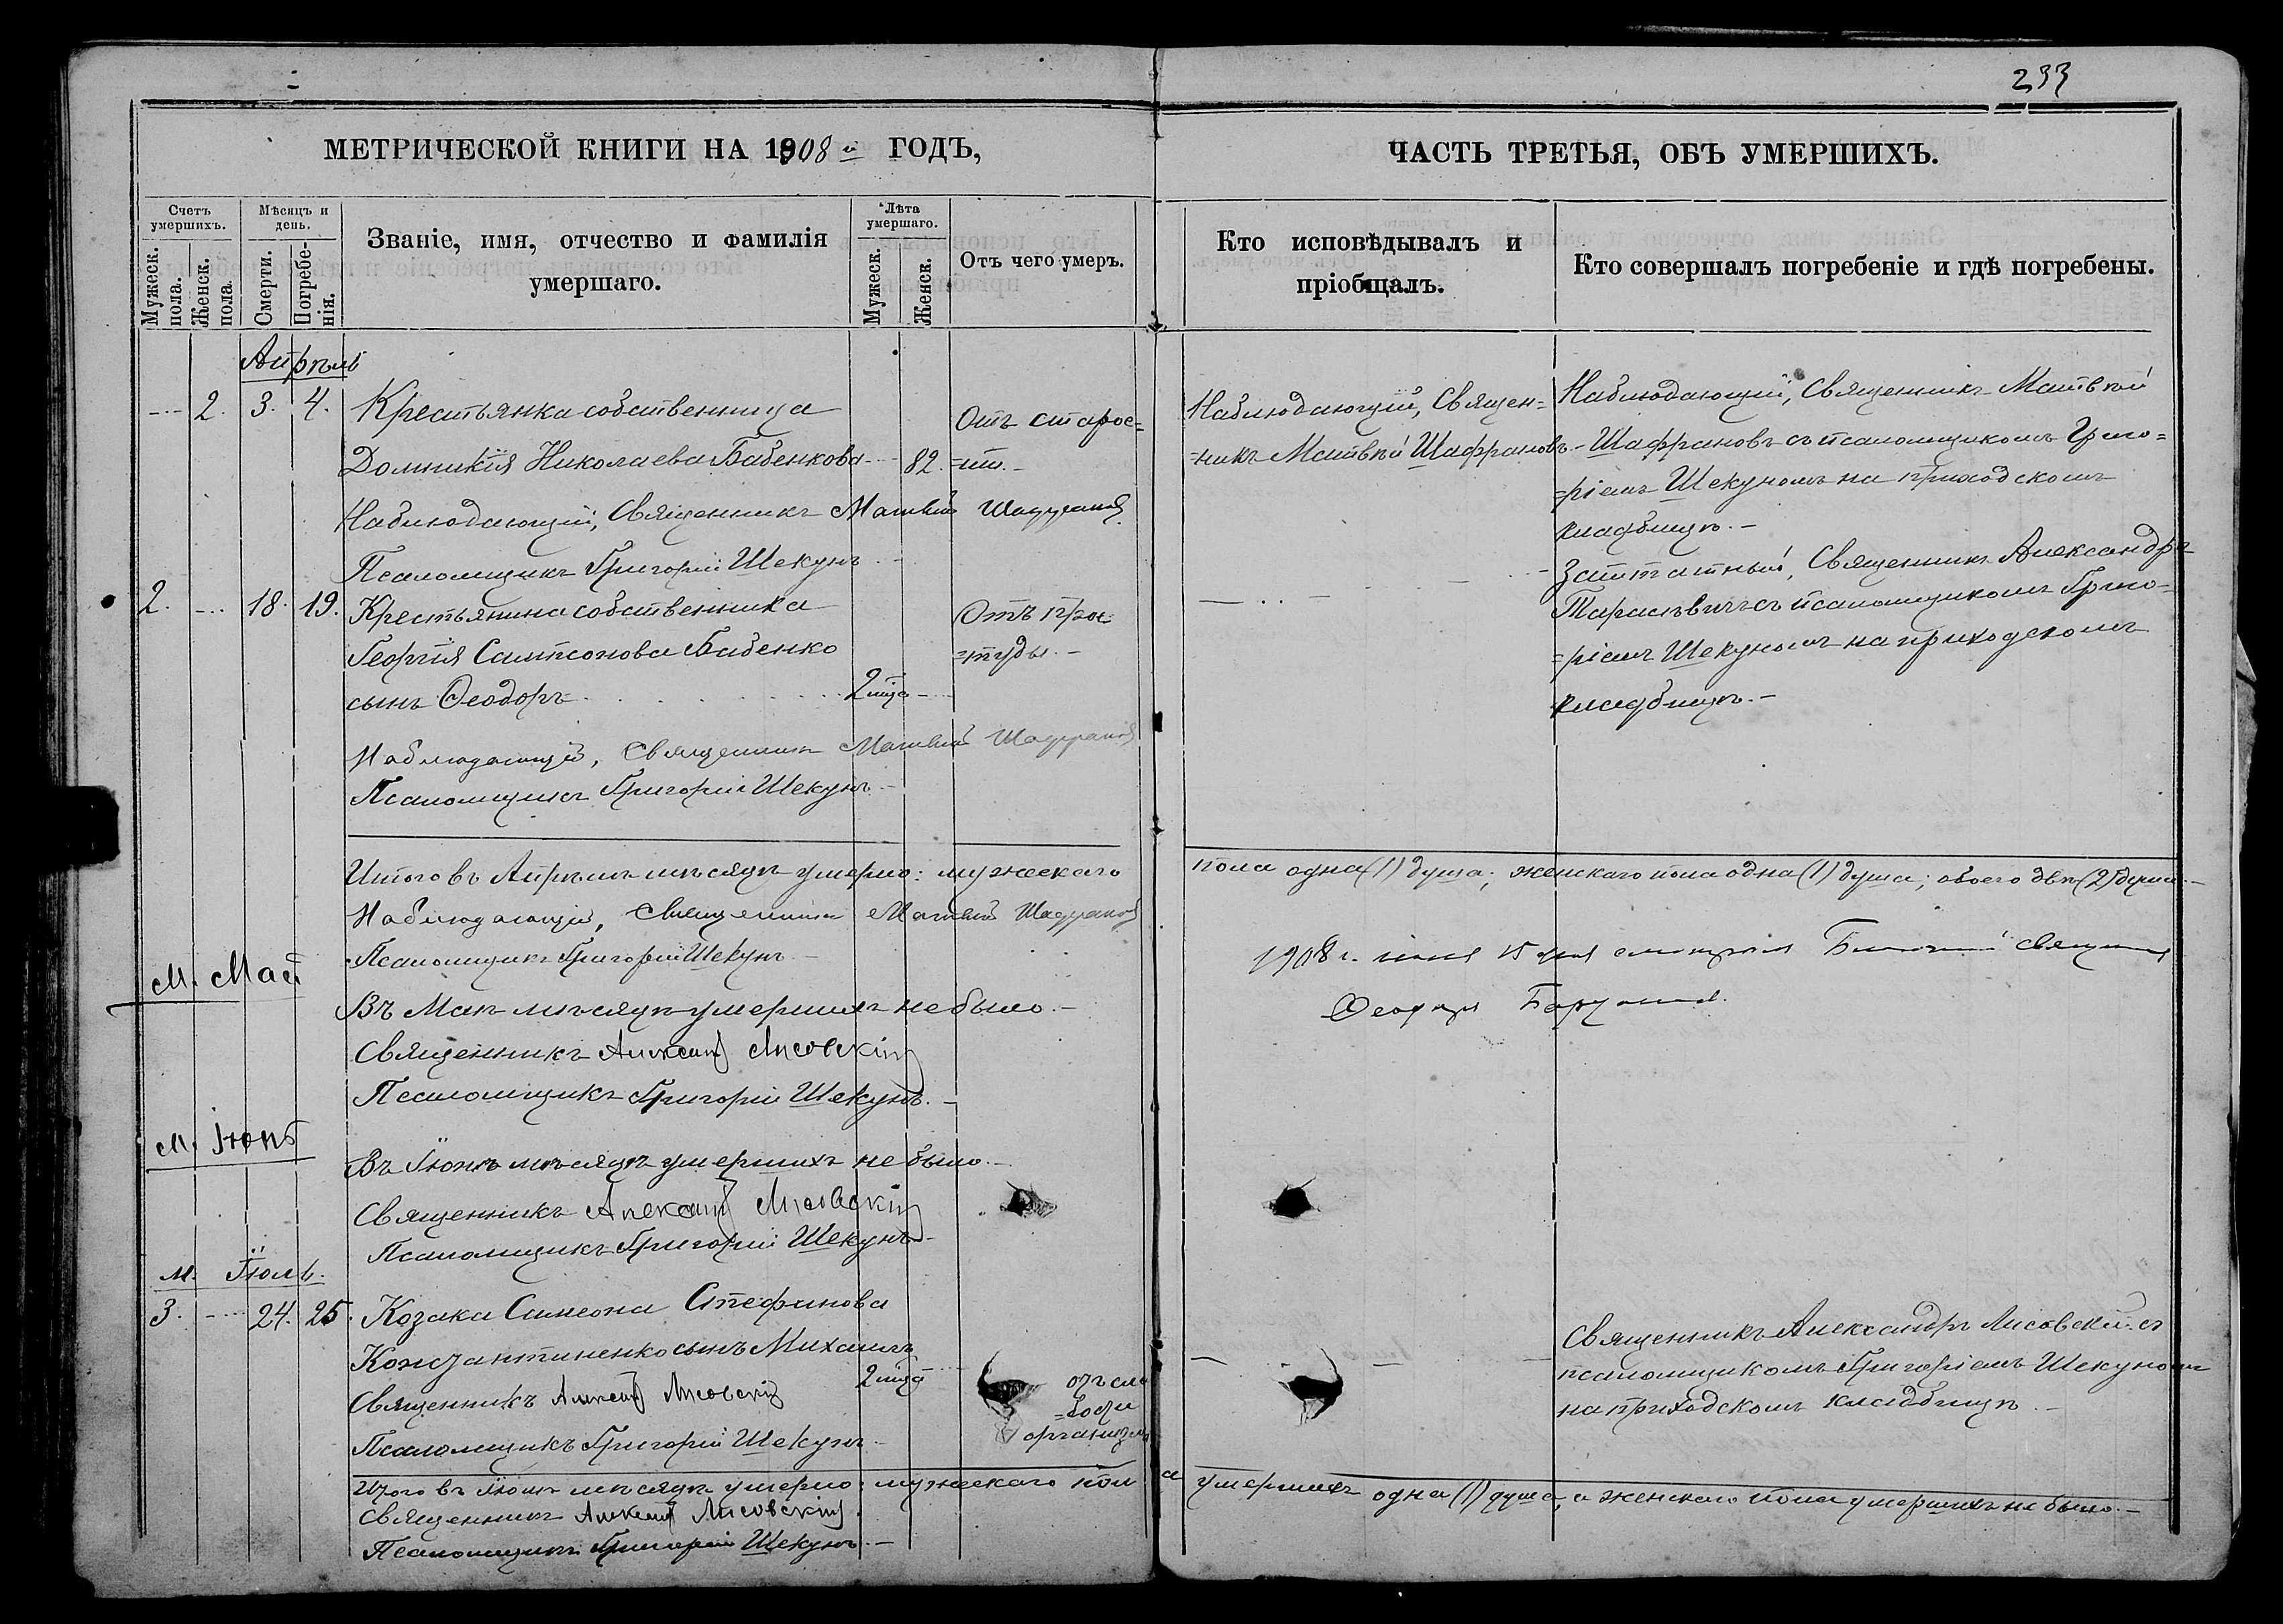 233
МЕТРИЧЕСКОЙ КНИГИ НА 1908 й ГОДЪ,
ЧАСТЬ ТРЕТЬЯ, ОБЪ УМЕРШИХЪ.
Счетъ умершихъ.
Мужеск. пола.
Женск. пола.
Мѣсяцъ и день.
Смерти.
Погребенія.
Званіе, имя, отчество и фамилія
умершаго.
Лѣта умершаго.
Мужеск.
Женск.
Отъ чего умеръ.
Кто исповѣдывалъ и
пріобщалъ.
Кто совершалъ погребеніе и гдѣ погребены.
Апрѣль
2. 3. 4. Крестьянка собственница
Домникія Николаева Бабенкова 82.
Отъ старос=
=ти.
Наблюдающій, Священ=
=никъ Матвѣй Шаффрановъ.
Наблюдающій, Священникъ Матвѣй
Шаффрановъ съ псаломщикомъ Григо=
=ріемъ Шекуномъ на приходскомъ
кладбищѣ.
Наблюдающій, Священникъ Матвѣй Шаффрановъ
Псаломщикъ Григорій Шекунъ
2. 18. 19. Крестьянина собственника
Георгія Сампсонова Бабенко
сынъ Ѳеодоръ 2 м͠ца
Отъ прос=
=туды.
Заштатный, Священникъ Александръ
Тарасѣвичъ съ псаломщикомъ Григо=
=ріемъ Шекуномъ на приходскомъ
кладбищѣ.
Наблюдающій, Священникъ Матвѣй Шаффрановъ
Псаломщикъ Григорій Шекунъ
Итого въ Апрѣлѣ мѣсяцѣ умерло: мужескаго пола одна (1) душа; женскаго пола одна (1) душа; обоего двѣ (2) души.
Наблюдающій, Священникъ Матвѣй Шаффрановъ
Псаломщикъ Григорій Шекунъ
1908 г. іюня 15 дня
Ѳеодоръ
М. Май
Въ Маѣ мѣсяцѣ умершихъ не было.
Священникъ Александ Лисовскій
Псаломщикъ Григорій Шекунъ.
М. Іюнь
Въ Іюнѣ мѣсяцѣ умершихъ не было.
Священникъ Александ Лисовскій
Псаломщикъ Григорій Шекунъ
М. Іюль.
3. 24. 25. Козака Симеона Стефанова
Константиненко сынъ Михаилъ 2 м͠ца
отъ сла
=бости
организма
Священникъ Александръ Лисовскій съ
псаломщикомъ Григоріемъ Шекуномъ
на приходскомъ кладбищѣ.
Священникъ Александ Лисовскій
Псаломщикъ Григорій Шекунъ
Итого въ Іюлѣ мѣсяцѣ умерло: мужескаго пола умершихъ одна (1) душа, а женскаго пола умершихъ не было.
Священникъ Александ Лисовскій.
Псаломщикъ Григорій Шекунъ.